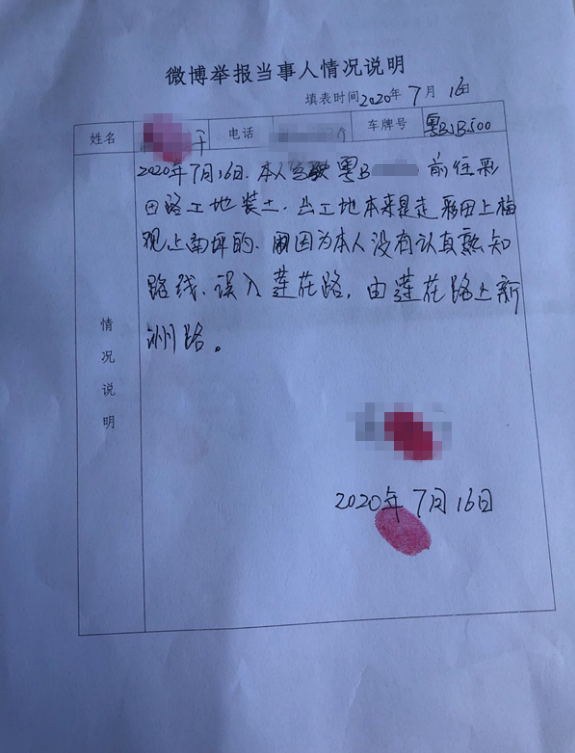 微博举报当事人情况说明
填表时间2020年7月16日
姓名 电话 车牌号
2020年7月16日.本人驾驶粤B 前往彩
田路工地装土.出工地本来是走彩田上梅
观上南坪的.因为本人没有认真熟知
路线、误入莲花路,由莲花路上新
洲路。
情况说明
2020年7月16日